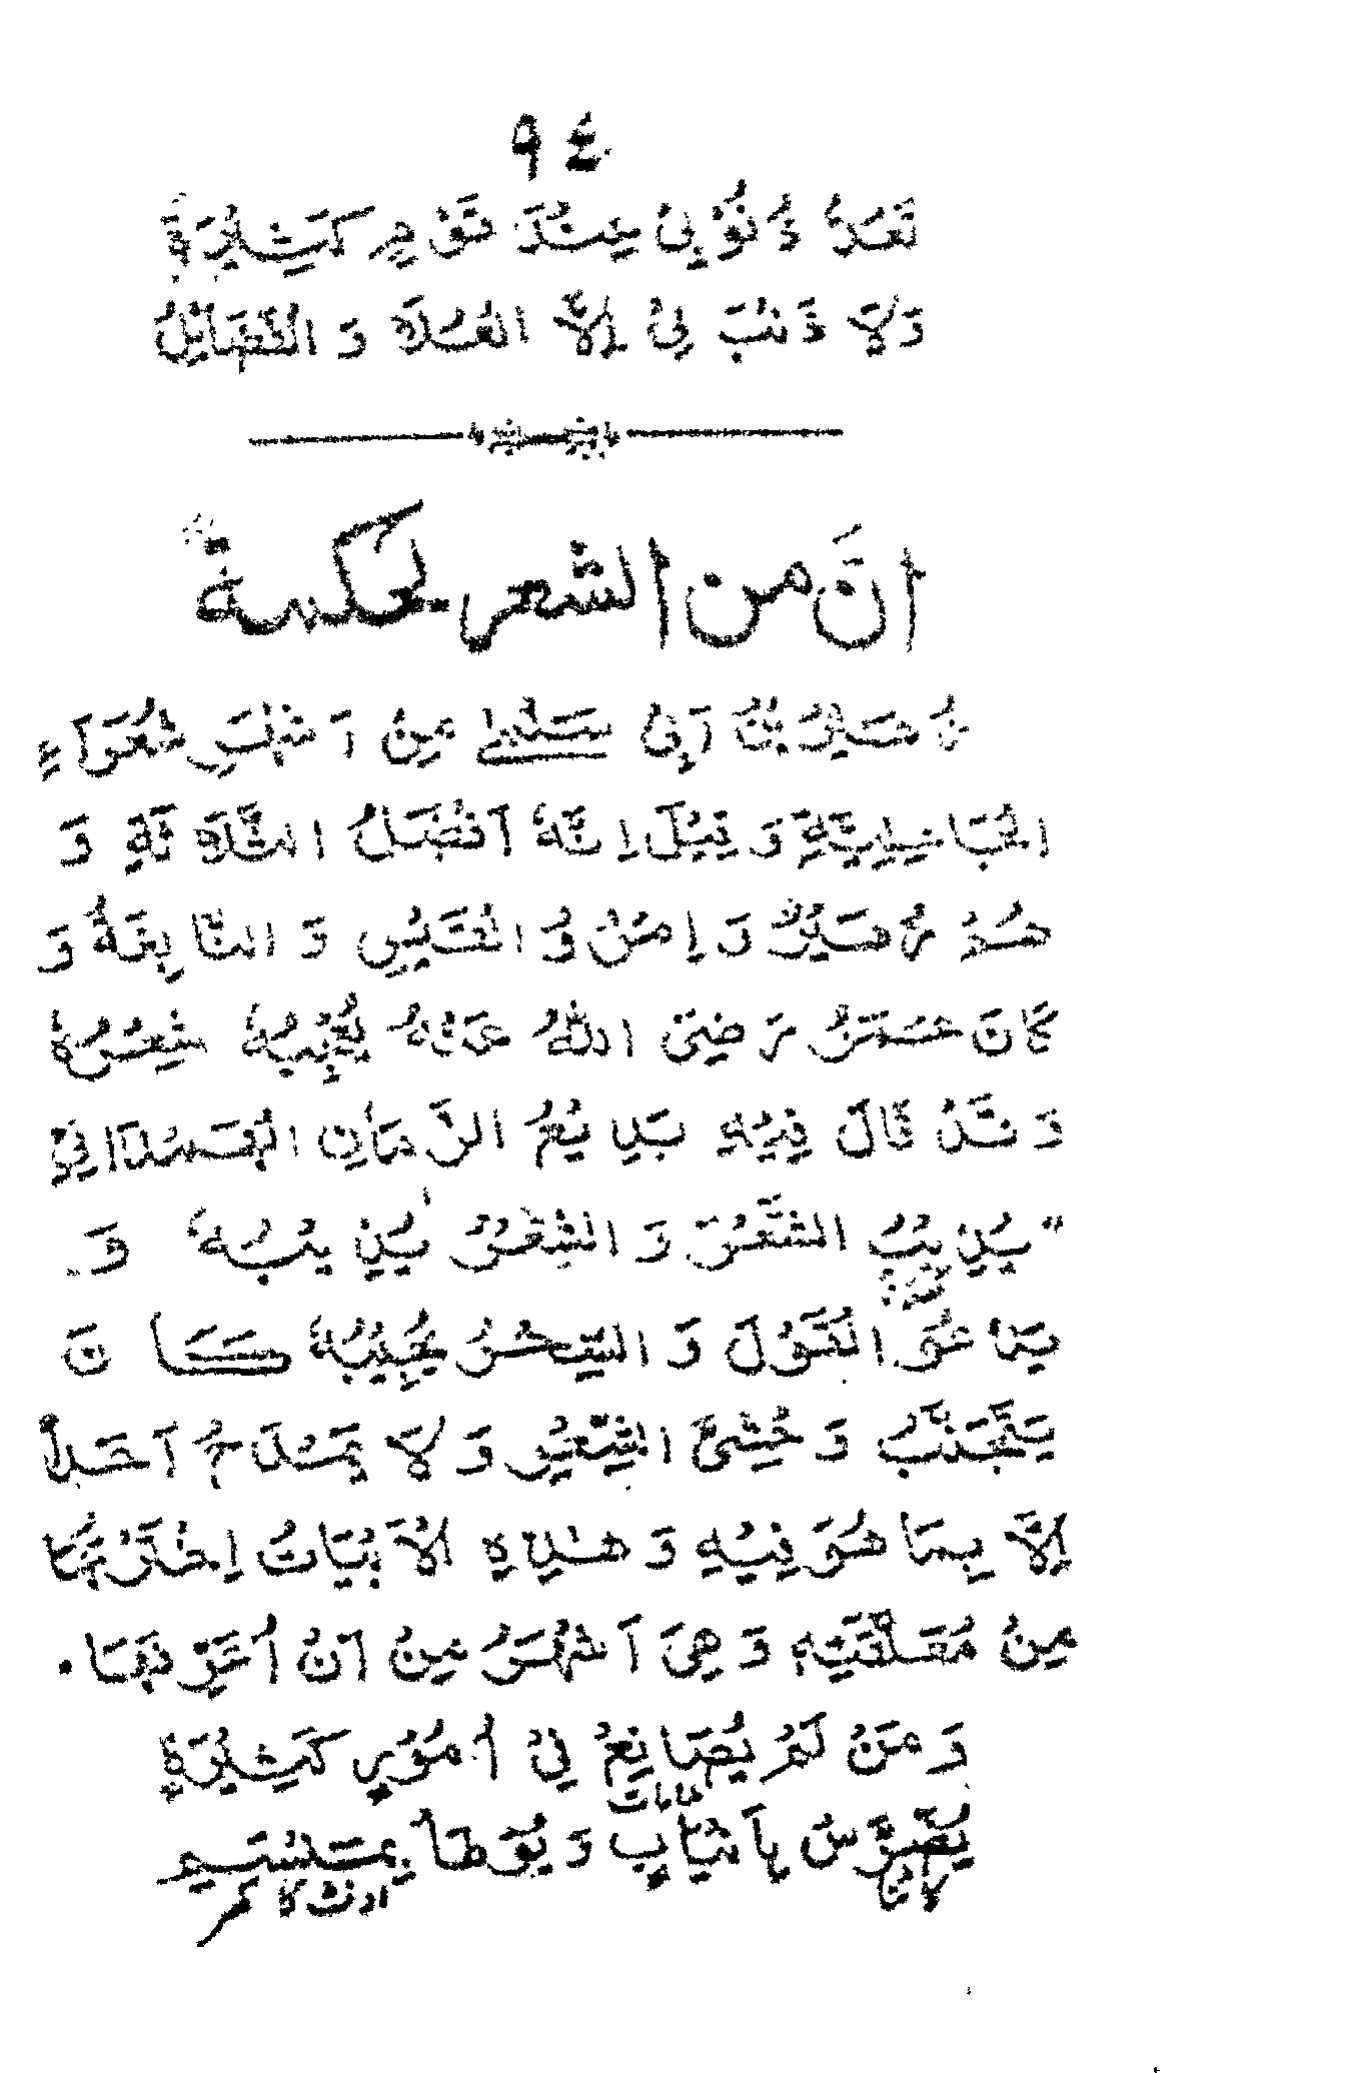 ٩٤
تَعُدُّ ذُنُوْبِيْ عِنْدَ قَوْمٍ كَثِيْرَةً
وَلَا ذَنْبَ لِيْ اِلَّا الْعُلٰى وَ الْفَضَائِلُ
انَّ من الشعر لحكمة
زُهَيْرُ بْنُ اَبِيْ سَلْمٰى مِنْ اَشْهَرِ شُعَرَاءِ
الْجَاهِلِيَّةِ وَ قِيْلَ اِنَّهٗ اَفْضَلُ الثَّلَاثَةِ وَ
هُمْ زُهَيْرٌ وَ اِمْرُؤُ الْقَيْسِ وَ النَّابِغَةُ وَ
كَانَ عُمَرُ رَضِيَ اللّٰهُ عَنْهُ يُعْجِبُهٗ شِعْرُهٗ
وَ قَدْ قَالَ فِيْهِ بَدِيْعُ الزَّمَانِ الْهَمَدَانِيْ
"يُذِيْبُ الشِّعْرَ وَ الشِّعْرُ يُذِيْبُهٗ وَ
يَدْعُو الْقَوْلَ وَ السِّحْرُ يُجِيْبُهٗ كَانَ
يَتَجَنَّبُ وَحْشِيَّ الشِّعْرِ وَ لَا يَمْدَحُ اَحَدًا
اِلَّا بِمَا هُوَ فِيْهِ وَ هٰذِهِ الْاَبْيَاتُ اِخْتَرْتُهَا
مِنْ مُعَلَّقَتِهٖ وَ هِيَ اَشْهَرُ مِنْ اَنْ اُعَرِّفَهَا۔
وَ مَنْ لَمْ يُصَانِعْ فِيْ اُمُوْرٍ كَثِيْرَةٍ
يُضَرَّسْ بِاَنْيَابٍ وَ يُوْطَأْ بِمَنْسِمِ